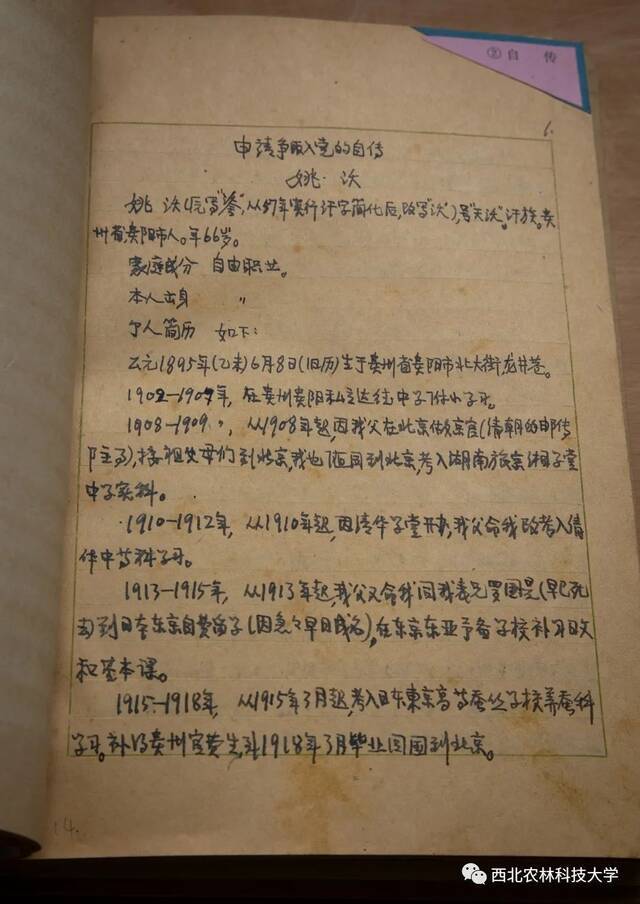 ② 自 传
6.
申请争取入党的自传
姚 汯
姚 汯(原写"鋈",从57年实行汉字简化后,改写"汯"),号"天沃"。汉族。贵
州省贵阳市人。年66岁。
家庭成分 自由职业。
本人出身 〃
个人简历 如下:
公元1895年(乙未)6月8日(旧历)生于贵州省贵阳市北大街龙井巷。
1902—1907年,在贵州贵阳私立达德中学附小学习。
1908—1909〃,从1908年起,因我父在北京做京官(清朝的邮传
部主事),接祖父母们到北京,我也随同到北京,考入湖南旅京湘学堂
中学实科。
1910—1912年,从1910年起,因清华学堂开办,我父命我改考入清
华中等科学习。
1913—1915年,从1913年起,我父又命我同我表兄罗国是(早已死
去)到日本东京自费留学(因急々早日成名),在东京东亚予备学校补习日文
和基本课。
1915—1918年,从1915年3月起,考入日本東京高等蚕丝学校养蚕科
学习。补得贵州官费生,到1918年3月毕业回国到北京。
14.
西北农林科技大学